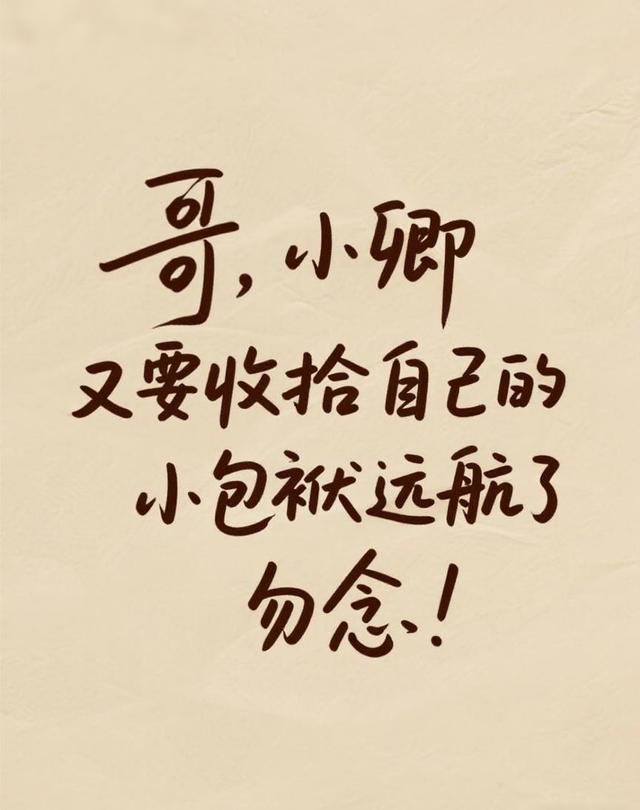 哥,小卿
又要收拾自己的
小包袱远航了
勿念!